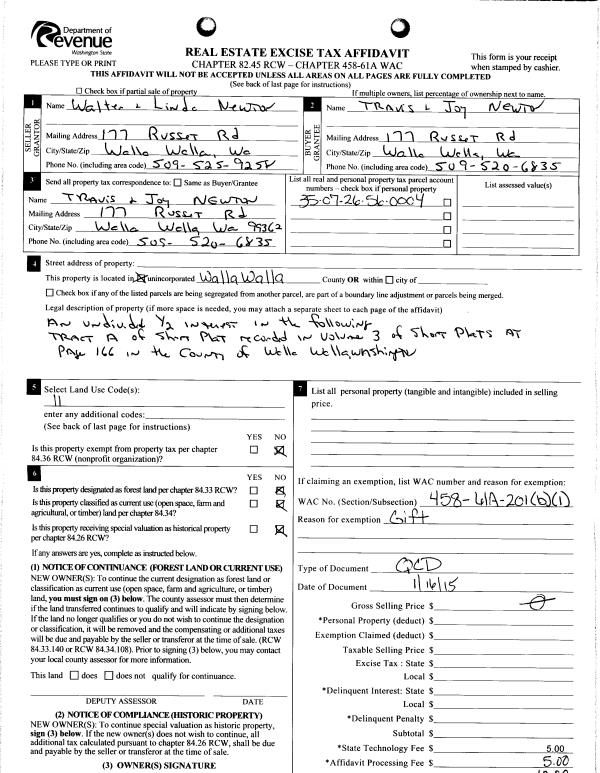 Department of
Revenue
Washington State
PLEASE TYPE OR PRINT
REAL ESTATE EXCISE TAX AFFIDAVIT
CHAPTER 82.45 RCW – CHAPTER 458-61A WAC
This form is your receipt
when stamped by cashier.
THIS AFFIDAVIT WILL NOT BE ACCEPTED UNLESS ALL AREAS ON ALL PAGES ARE FULLY COMPLETED
(See back of last page for instructions)
Check box if partial sale of property
If multiple owners, list percentage of ownership next to name.
1 Name Walter & Linda Newton
SELLER
GRANTOR
Mailing Address 177 Russet Rd
City/State/Zip Walla Walla, Wa
Phone No. (including area code) 509-525-9258
2 Name TRAVIS & Joy NEWTON
BUYER
GRANTEE
Mailing Address 177 Russet Rd
City/State/Zip Walla Walla, Wa
Phone No. (including area code) 509-520-6835
3 Send all property tax correspondence to: Same as Buyer/Grantee
Name TRAVIS & Joy NEWTON
Mailing Address 177 Russet Rd
City/State/Zip Walla Walla Wa 99362
Phone No. (including area code) 509- 520-6835
List all real and personal property tax parcel account
numbers – check box if personal property
35-07-26-56-0004
List assessed value(s)
4 Street address of property:
This property is located in unincorporated Walla Walla County OR within city of
Check box if any of the listed parcels are being segregated from another parcel, are part of a boundary line adjustment or parcels being merged.
Legal description of property (if more space is needed, you may attach a separate sheet to each page of the affidavit)
AN undivided 1/2 interest in the following
TRACT A of Short Plat recorded in Volume 3 of Short Plats AT
Page 166 in the County of Walla Walla, Washington
5 Select Land Use Code(s):
11
enter any additional codes:
(See back of last page for instructions)
YES NO
Is this property exempt from property tax per chapter
84.36 RCW (nonprofit organization)?
6
YES NO
Is this property designated as forest land per chapter 84.33 RCW?
Is this property classified as current use (open space, farm and
agricultural, or timber) land per chapter 84.34?
Is this property receiving special valuation as historical property
per chapter 84.26 RCW?
If any answers are yes, complete as instructed below.
(1) NOTICE OF CONTINUANCE (FOREST LAND OR CURRENT USE)
NEW OWNER(S): To continue the current designation as forest land or
classification as current use (open space, farm and agriculture, or timber)
land, you must sign on (3) below. The county assessor must then determine
if the land transferred continues to qualify and will indicate by signing below.
If the land no longer qualifies or you do not wish to continue the designation
or classification, it will be removed and the compensating or additional taxes
will be due and payable by the seller or transferor at the time of sale. (RCW
84.33.140 or RCW 84.34.108). Prior to signing (3) below, you may contact
your local county assessor for more information.
This land does does not qualify for continuance.
DEPUTY ASSESSOR DATE
(2) NOTICE OF COMPLIANCE (HISTORIC PROPERTY)
NEW OWNER(S): To continue special valuation as historic property,
sign (3) below. If the new owner(s) does not wish to continue, all
additional tax calculated pursuant to chapter 84.26 RCW, shall be due
and payable by the seller or transferor at the time of sale.
(3) OWNER(S) SIGNATURE
7 List all personal property (tangible and intangible) included in selling
price.
If claiming an exemption, list WAC number and reason for exemption:
WAC No. (Section/Subsection) 458-61A-201(b)(1)
Reason for exemption Gift
Type of Document QCD
Date of Document 1/16/15
Gross Selling Price $ 0
*Personal Property (deduct) $
Exemption Claimed (deduct) $
Taxable Selling Price $
Excise Tax : State $
Local $
*Delinquent Interest: State $
Local $
*Delinquent Penalty $
Subtotal $
*State Technology Fee $ 5.00
*Affidavit Processing Fee $ 5.00